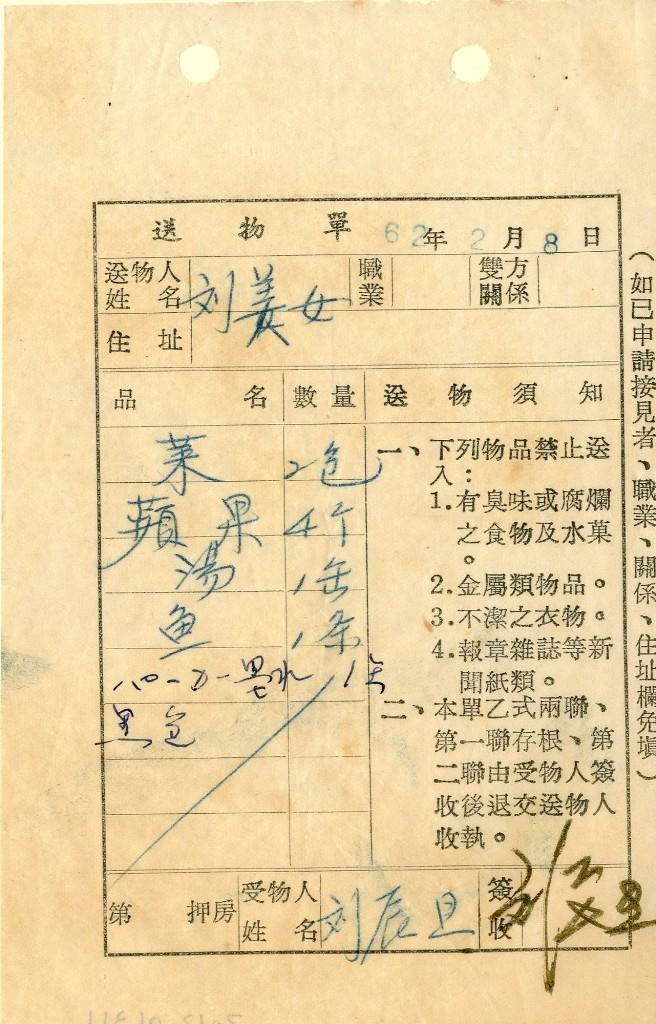 送物單 62年2月8日
送物人姓名 刘美女 職業 雙方關係
住址
品名 數量 送物須知
菜 2包
蘋果 4个
湯 1缶
鱼 1条
墨水
黑色
一、下列物品禁止送入：
1.有臭味或腐爛之食物及水菓。
2.金屬類物品。
3.不潔之衣物。
4.報章雜誌等新聞紙類。
二、本單乙式兩聯、第一聯存根、第二聯由受物人簽收後退交送物人收執。
第 押房 受物人姓名 刘辰旦 簽收 刘辰旦
（如已申請接見者、職業、關係、住址欄免填）